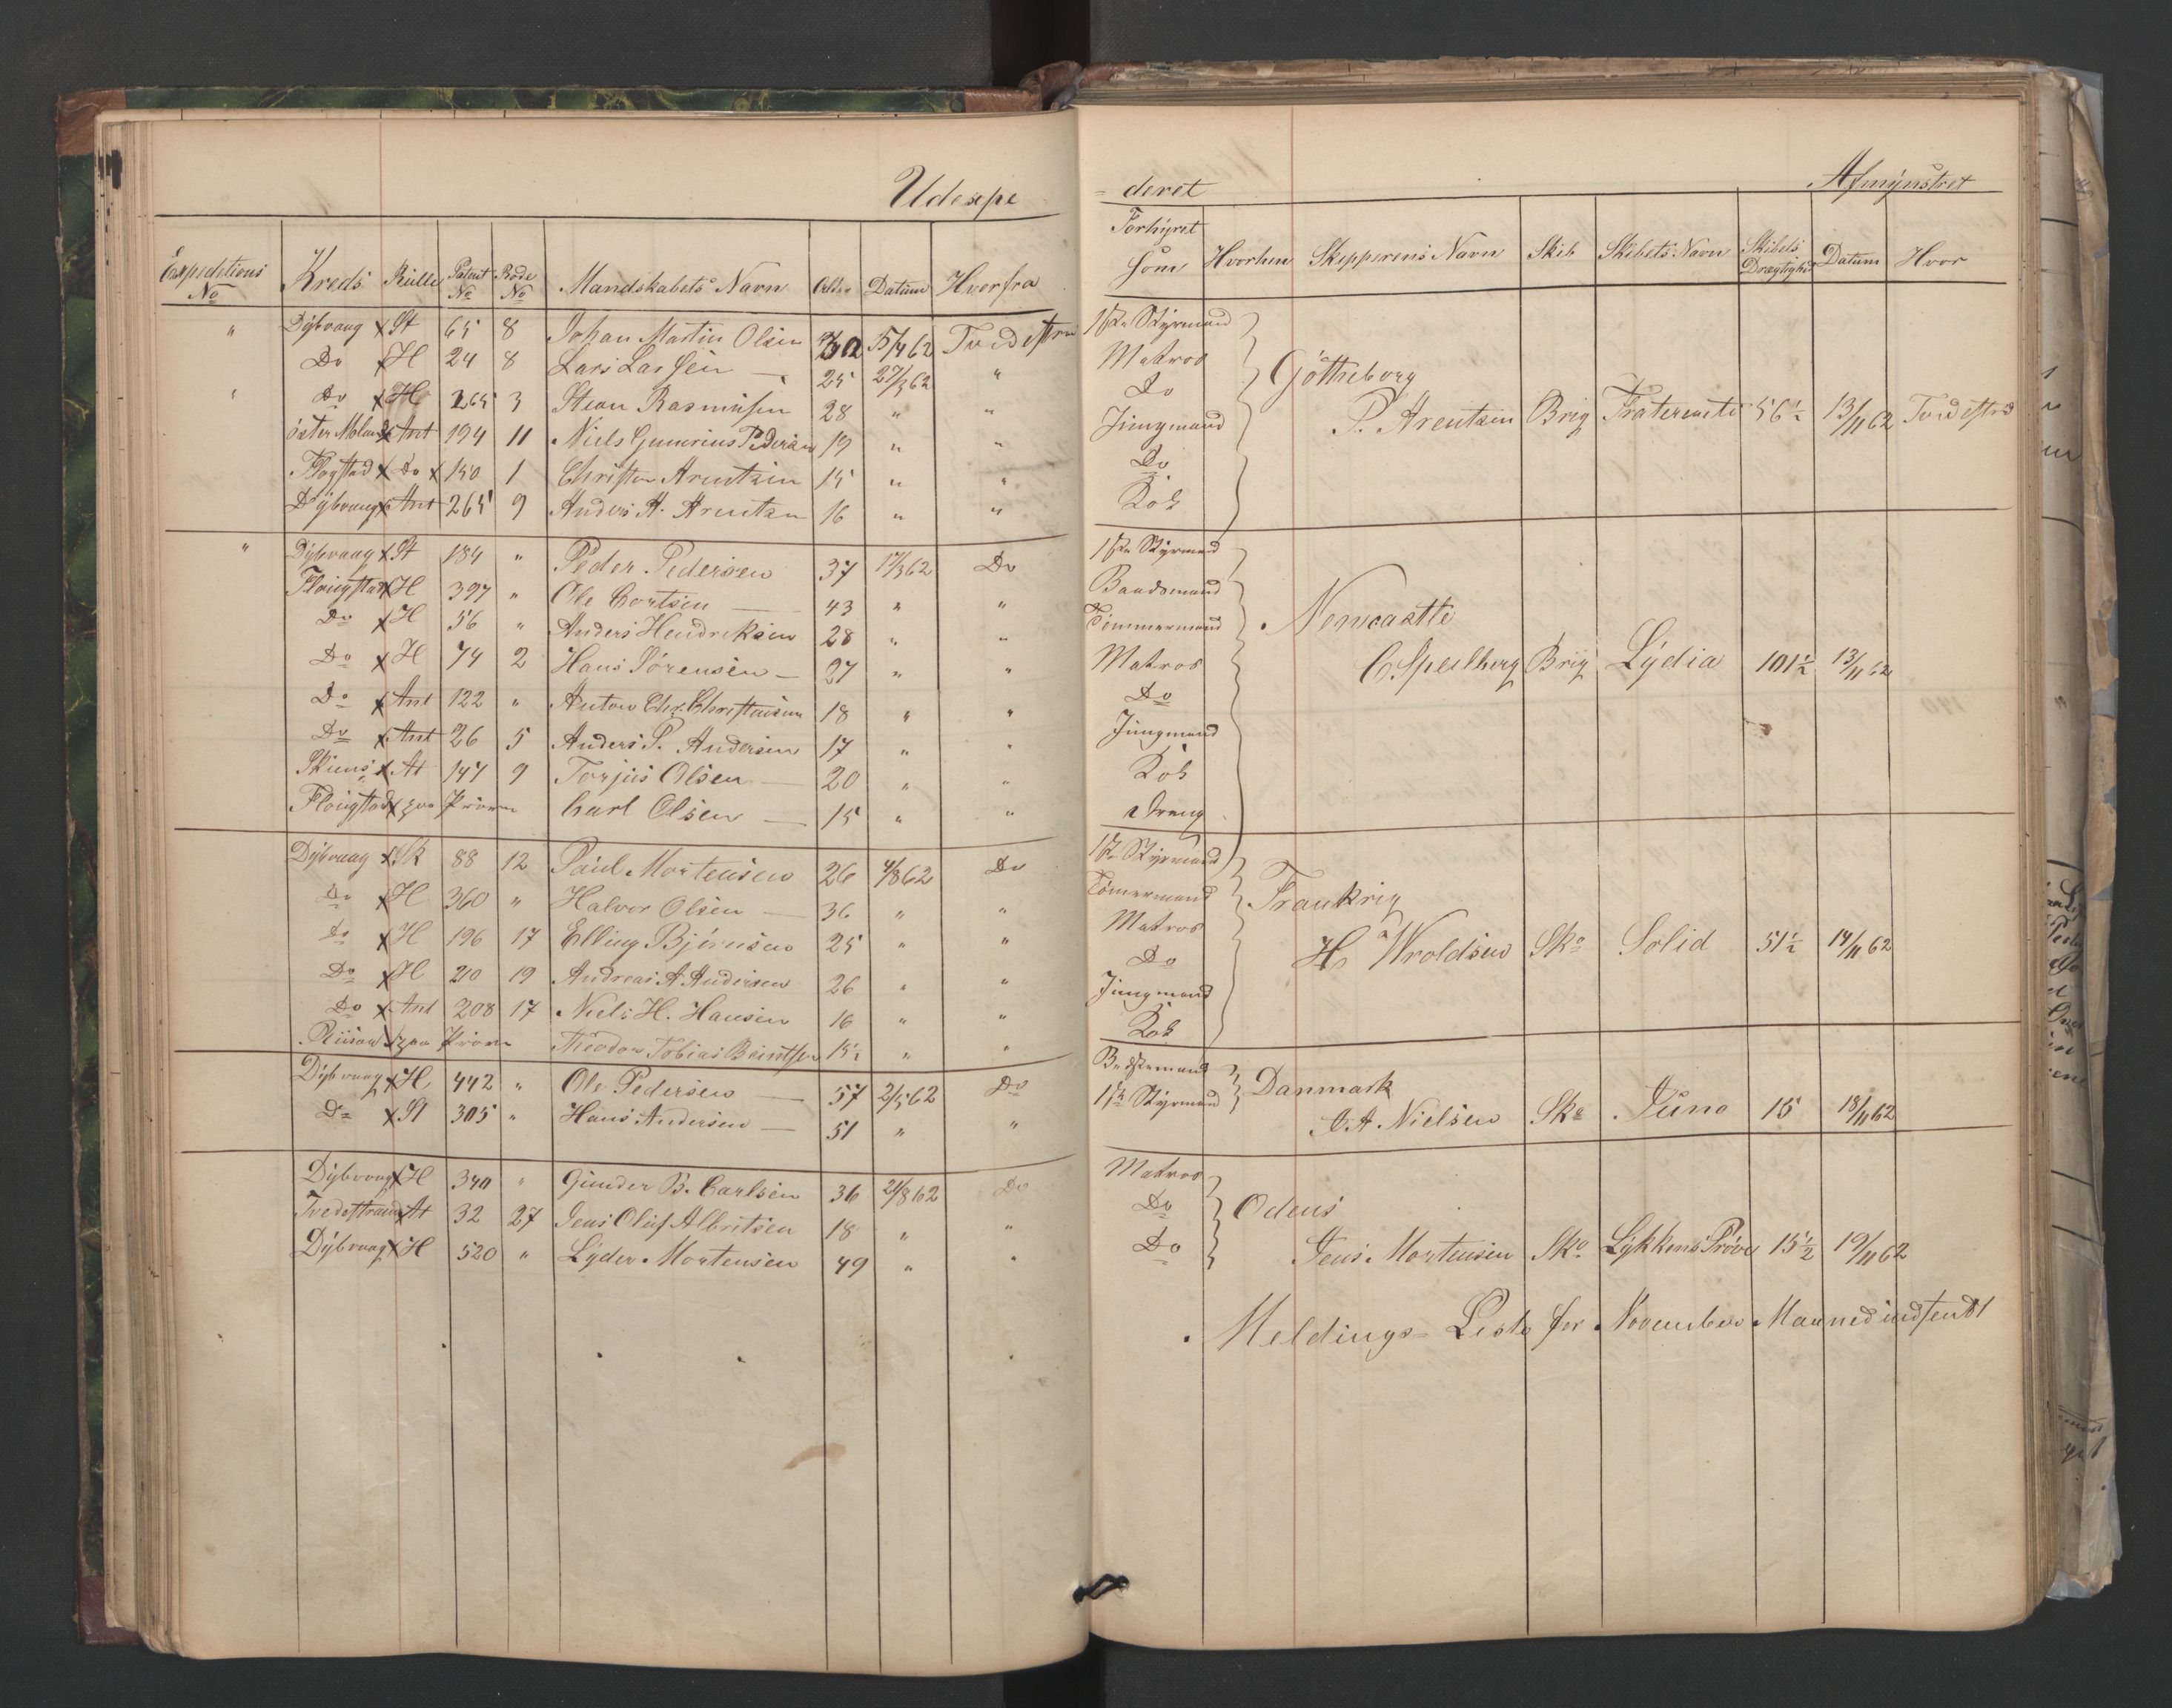 Udexpe
Expeditions No Kreds Rulle Patent No Rode No Mandskabets Navn Alder Datum Hvorfra
" Dybvaag x St 65 8 Johan Martin Olsen 5/4 62 Tvedestrand
Do x H 24 8 Lars Larssen — 25 27/3 62 "
" Do x H 265 3 Stean Rasmussen 28 " "
öster Moland x Ant 194 11 Niels Gunerius Pedersen 19 " "
Flagstad x Do x 150 1 Christen Arentzen 15 " "
Dybvaag x Ant 265 9 Anders A. Arentzen 16 " "
" Dybvaag x St 184 " Peder Pedersen 37 17/3 62 Do
Flougstad x H 397 " Ole Cortsen — 43 " "
Do x H 56 " Anders Hendriksen 28 " "
Do x H 74 2 Hans Sörensen — 27 " "
Do x Ant 122 " Anton Chr. Christensen 18 " "
Do x Ant 26 5 Anders P. Andersen 17 " "
Skiens x At 147 9 Torjus Olsen — 20 " "
Flougstad x Carl Olsen — 15 " "
Dybvaag x Sk 88 12 Paul Mortensen 26 4/8 62 Do
Do x H 360 " Halvor Olsen — 36 " "
Do x H 196 17 Elling Björnsen 25 " "
Do x H 210 19 Andreas A Andersen 26 " "
Do x Ant 208 17 Niels H. Hansen 16 " "
Riisöer x Theodor Tobias Berntsen 15½ " "
Dybvaag x H 442 " Ole Pedersen — 57 2/5 62 Do
Do x St 305 " Hans Andersen — 51 " "
Dybvaag x H 340 " Gunder B. Carlsen 36 21/8 62 Do
Tvedestrand x At 32 27 Jens Oluf Albritsen 18 " "
Dybvaag x H 520 " Lyder Mortensen 49 " "
= deret Afmynstret
Forhyret Som Hvorhen Skipperens Navn Skib Skibets Navn Skibets Drægtighed Datum Hvor
1ste Styrmand
Matros
Do Götheborg
Jungmand P. Arentzen Brig Fraternite 56½ 13/11 62 Tvedestrd
Do
Kok
1ste Styrmand
Baadsmand
Tömmermand Newcastle
Matros C Speilberg Brig Lydia 101½ 13/11 62
Do
Jungmand
Kok
Dreng
1ste Styrmand
Tömermand Frankrig
Matros
Do H. Wroldsen Sko Solid 51½ 14/11 62
Jungmand
Kok
Bedstemand Danmark
1ste Styrmand A. Nielsen Sko Juno 15 18/11 62
Matros
Do Odens
Do Jens Mortensen Sko Lykkens Pröve 15½ 19/11 62
Meldings= Liste for November Maaned indsendt